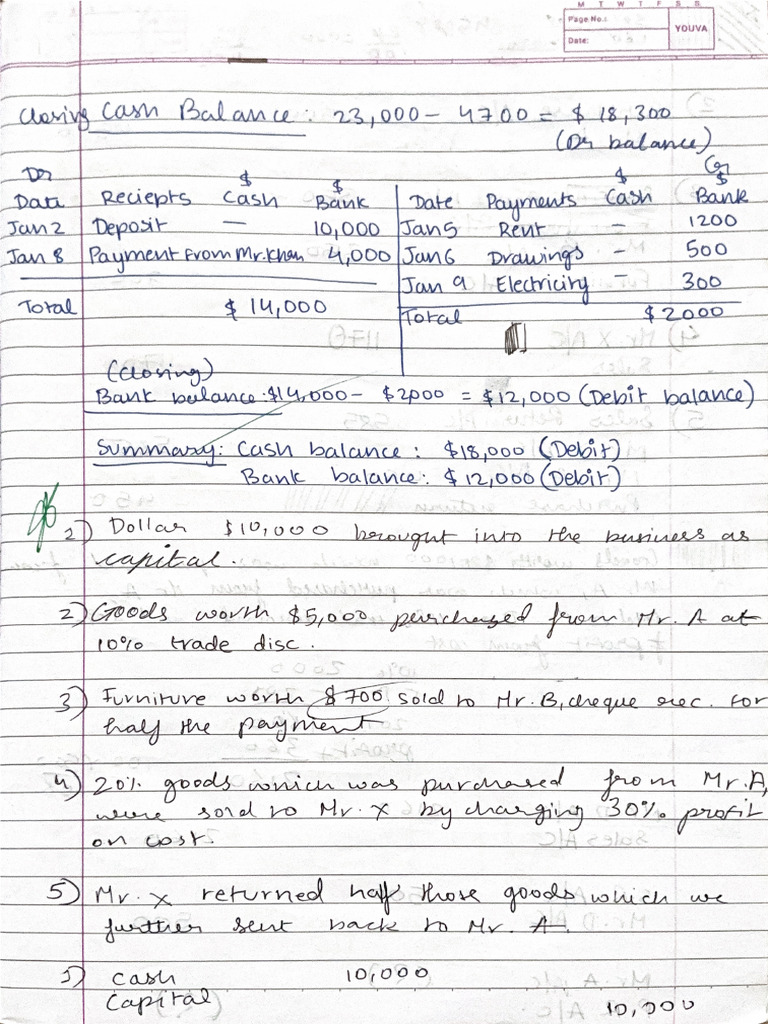 M T W T F S S
Page No.:
Date:
YOUVA
Closing Cash Balance: 23,000 - 4700 = $ 18,300
(Dr balance)
Dr $ $ $ Cr $
Date Reciepts Cash Bank Date Payments Cash Bank
Jan 2 Deposit — 10,000 Jan 5 Rent – 1200
Jan 8 Payment from Mr. Khan 4,000 Jan 6 Drawings – 500
Jan 9 Electricity – 300
Total $ 14,000 Total $ 2000
(closing)
Bank balance: $14,000 - $2000 = $12,000 (Debit balance)
Summary: Cash balance: $18,000 (Debit)
Bank balance: $12,000 (Debit)
2) Dollar $10,000 brought into the business as
capital.
2) Goods worth $5,000 purchased from Mr. A at
10% trade disc.
3) Furniture worth $700 sold to Mr. B, cheque rec. for
half the payment
4) 20% goods which was purchased from Mr. A,
were sold to Mr. X by charging 30% profit
on cost.
5) Mr. X returned half those goods which we
further sent back to Mr. A.
1) Cash 10,000
Capital 10,000